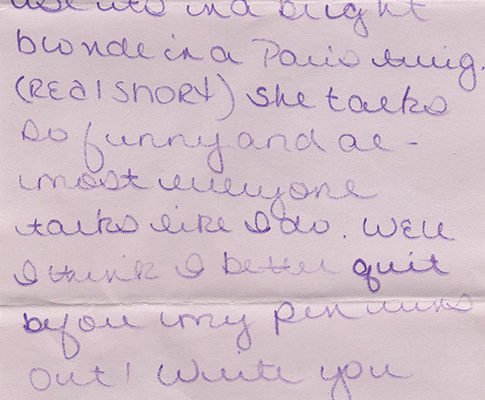 in a bright
blonde in a Paris
(REAl SHORt) she talks
so funny and al-
most everyone
talks like I do. Well
I think I better quit
before my pen runs
out! Write you